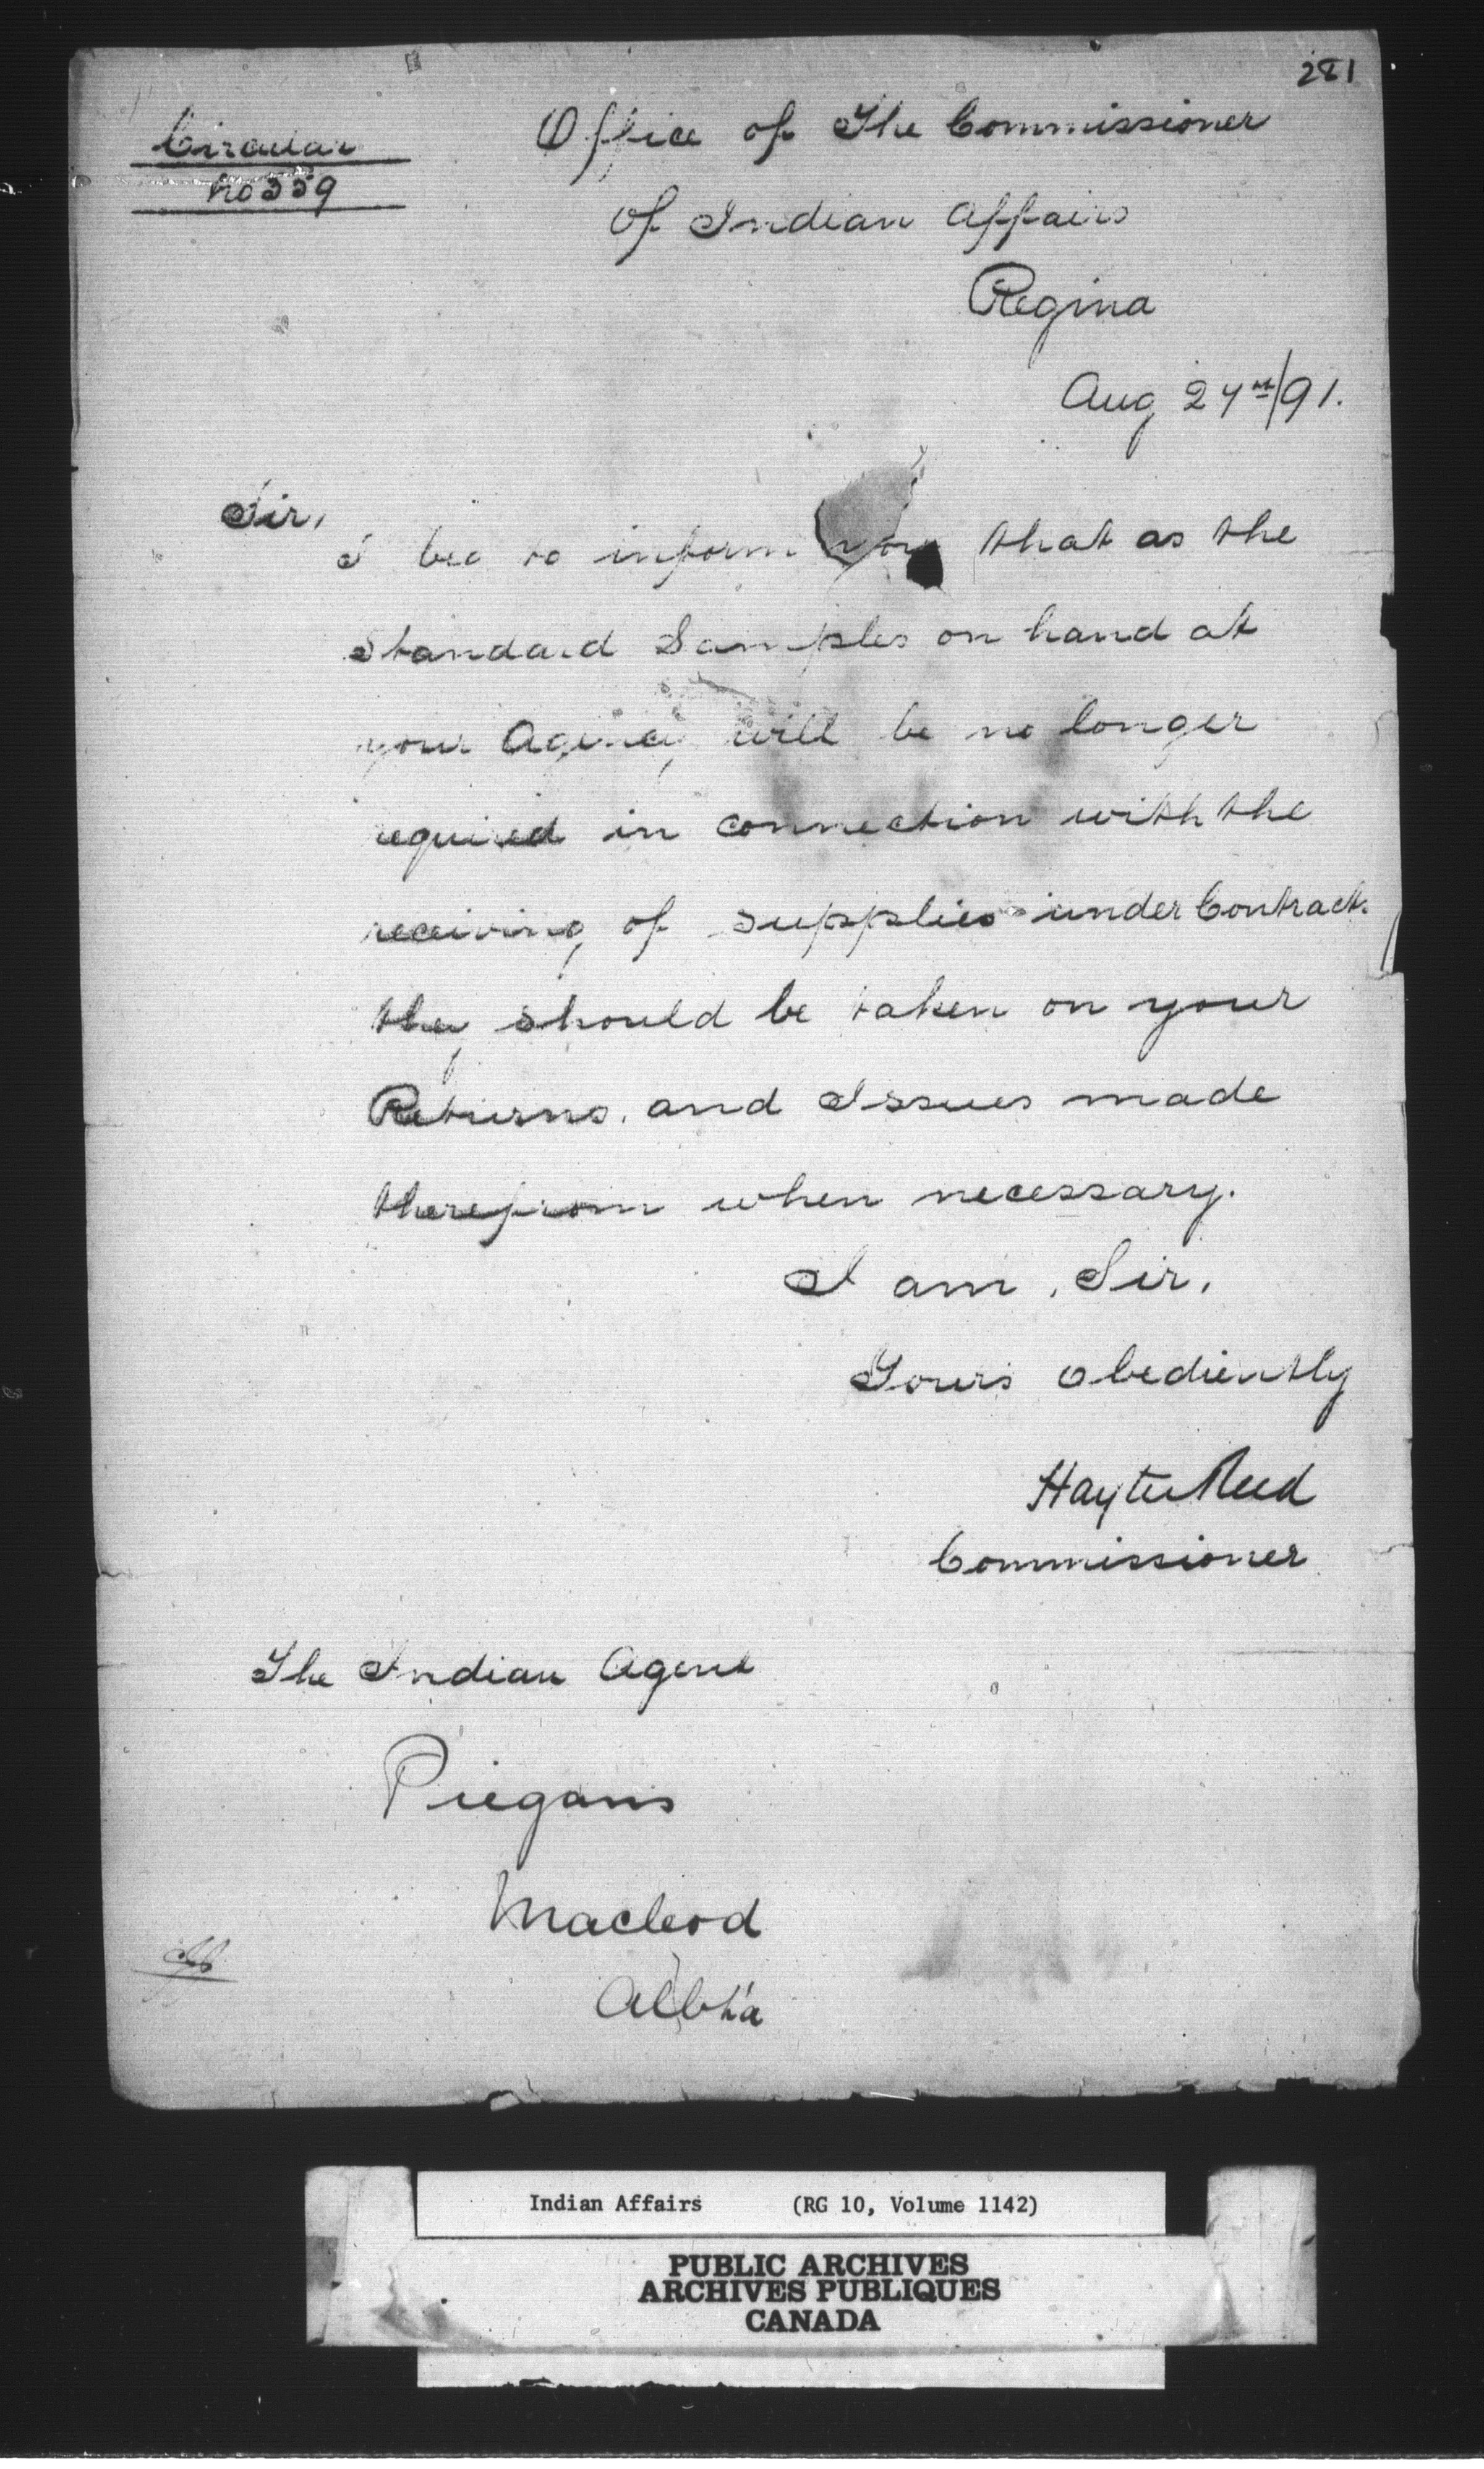 281
Circular
No 339
Office of The Commissioner
of Indian Affairs
Regina
Aug 24th/91.
Sir,
I beg to inform you that as the
Standard Samples on hand at
your Agency will be no longer
required in connection with the
receiving of supplies under Contract.
they should be taken on your
Returns. and Issues made
therefrom when necessary.
I am, Sir,
Yours obediently
Hayter Reed
Commissioner
The Indian Agent
Piegans
Macleod
Alb'ta
Indian Affairs (RG 10, Volume 1142)
PUBLIC ARCHIVES
ARCHIVES PUBLIQUES
CANADA